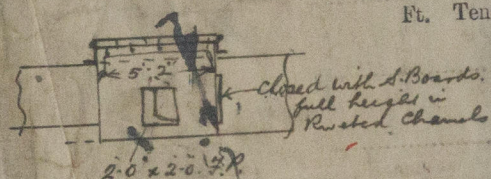 Ft. Ten
5'.2"
Closed with S. Boards.
full height in
Riveted Channels
2-0 x 2-0